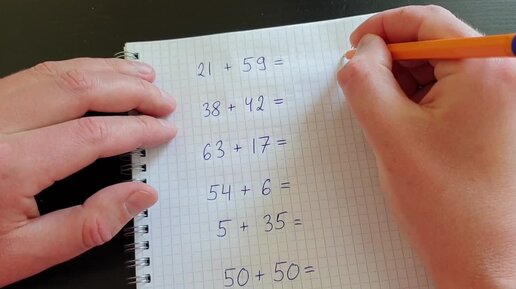 21 + 59 =
38 + 42 =
63 + 17 =
54 + 6 =
5 + 35 =
50 + 50 =